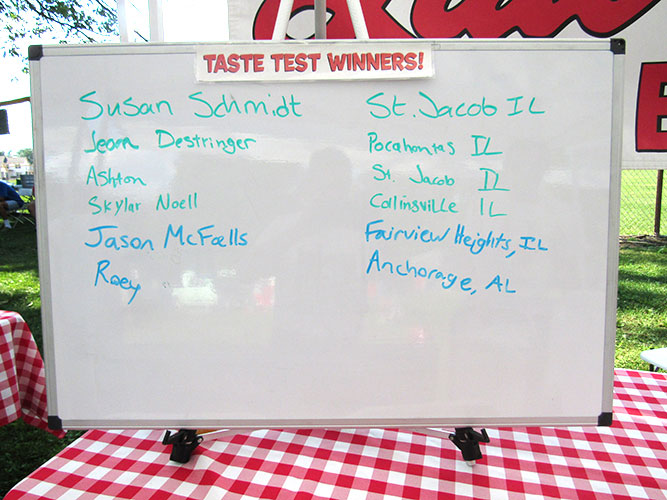 TASTE TEST WINNERS!
Susan Schmidt St. Jacob IL
Jeom Destringer Pocahontas IL
Ashton St. Jacob IL
Skylar Noell Collinsville IL
Jason McFaells Fairview Heights, IL
Roey Anchorage, AL